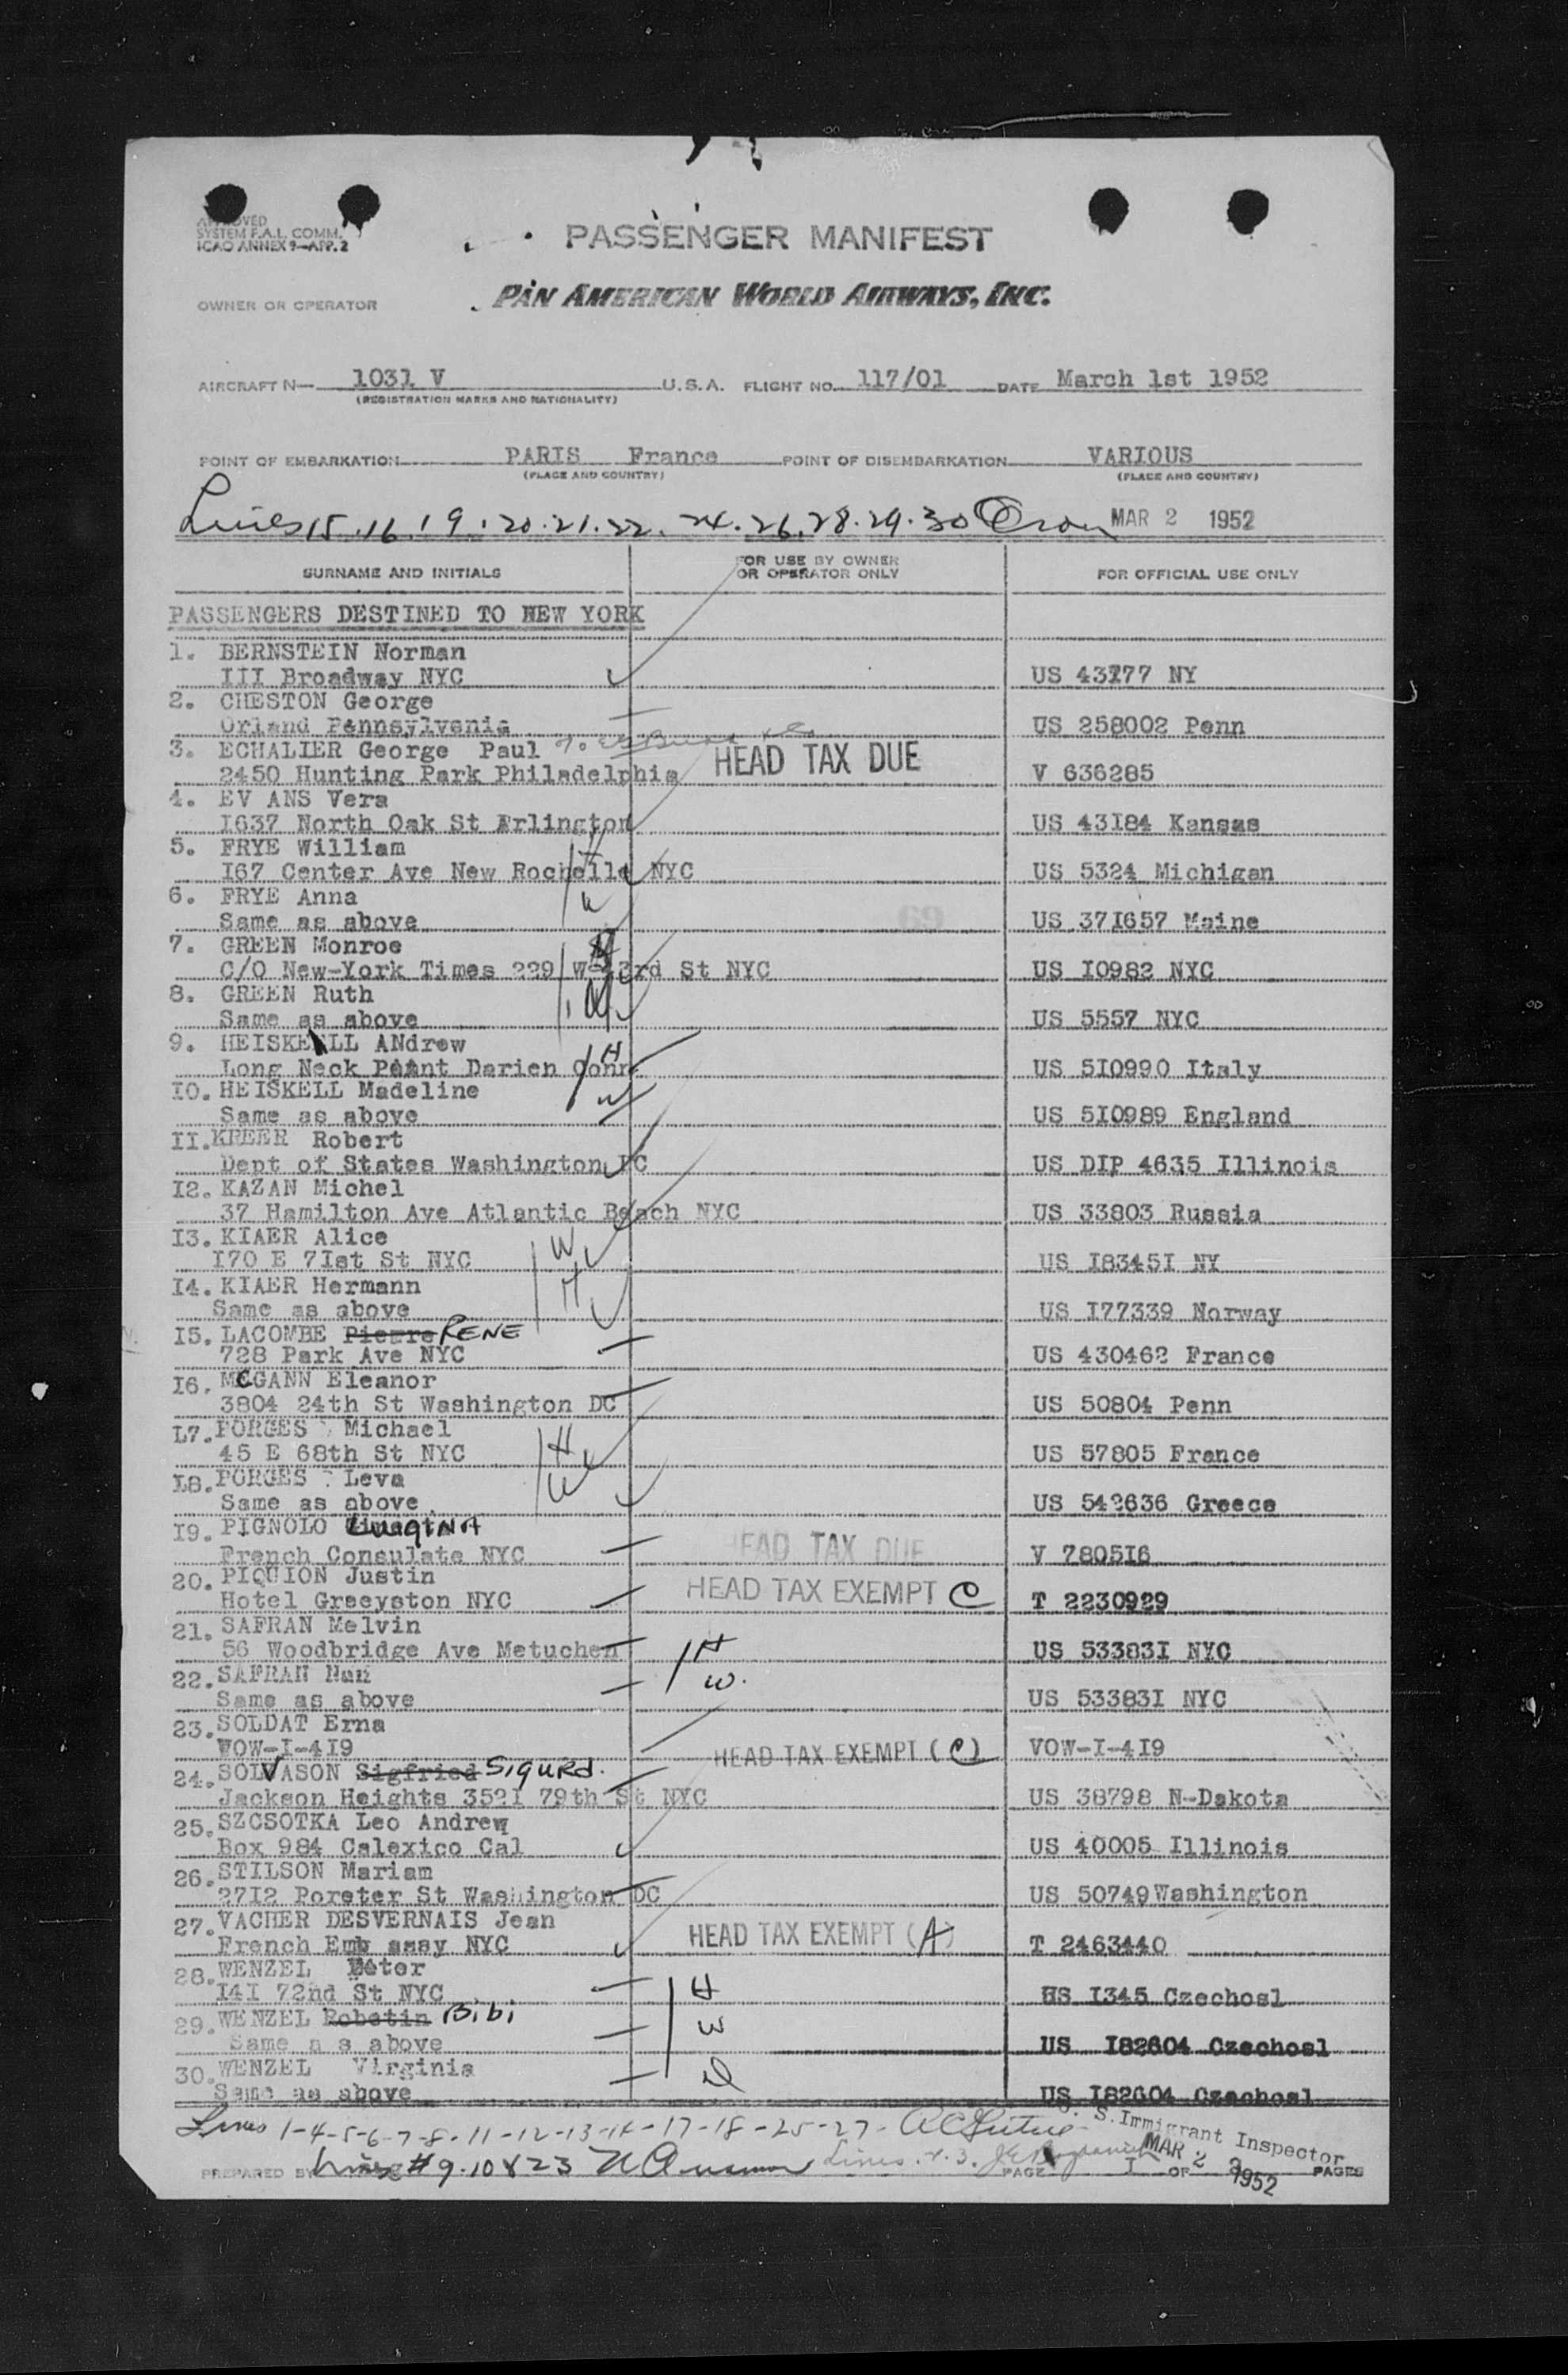 APPROVED
SYSTEM F.A.L. COMM.
ICAO ANNEX 9—APP. 2
PASSENGER MANIFEST
OWNER OR OPERATOR
PAN AMERICAN WORLD AIRWAYS, INC.
AIRCRAFT N— 1031 V U.S.A. FLIGHT NO. 117/01 DATE March 1st 1952
(REGISTRATION MARKS AND NATIONALITY)
POINT OF EMBARKATION PARIS France POINT OF DISEMBARKATION VARIOUS
(PLACE AND COUNTRY) (PLACE AND COUNTRY)
Lines 15.16.19.20.21.22.24.26.28.29.30 MAR 2 1952
SURNAME AND INITIALS FOR USE BY OWNER OR OPERATOR ONLY FOR OFFICIAL USE ONLY
PASSENGERS DESTINED TO NEW YORK
1. BERNSTEIN Norman
III Broadway NYC US 43177 NY
2. CHESTON George
Orland Pennsylvenia US 258002 Penn
3. ECHALIER George Paul
2450 Hunting Park Philadelphia HEAD TAX DUE V 636285
4. EV ANS Vera
1637 North Oak St Arlington US 43I84 Kansas
5. FRYE William H
I67 Center Ave New Rochelle NYC US 5324 Michigan
6. FRYE Anna W
Same as above US 37I657 Maine
69
7. GREEN Monroe H
C/O New-York Times 229 W 43rd St NYC US I0982 NYC
8. GREEN Ruth W
Same as above US 5557 NYC
9. HEISKELL ANdrew
Long Neck Point Darien Conn H US 5I0990 Italy
I0. HEISKELL Madeline W
Same as above US 5I0989 England
II. KREER Robert
Dept of States Washington DC US DIP 4635 Illinois
I2. KAZAN Michel
37 Hamilton Ave Atlantic Beach NYC US 33803 Russia
I3. KIAER Alice W
I70 E 7Ist St NYC US I8345I NY
I4. KIAER Hermann H
Same as above US I77339 Norway
I5. LACOMBE Pierre RENE
728 Park Ave NYC US 430462 France
I6. McGANN Eleanor
3804 24th St Washington DC US 50804 Penn
I7. PORGES Michael H
45 E 68th St NYC US 57805 France
I8. PORGES Leva W
Same as above US 542636 Greece
I9. PIGNOLO
French Consulate NYC HEAD TAX DUE V 7805I6
20. PIQUION Justin
Hotel Greeyston NYC HEAD TAX EXEMPT C T 2230929
21. SAFRAN Melvin
56 Woodbridge Ave Metuchen H US 53383I NYC
22. SAFRAN Nan W.
Same as above US 53383I NYC
23. SOLDAT Erna
VOW-I-4I9 HEAD TAX EXEMPT (C) VOW-I-4I9
24. SOLVASON Sigfried SIGURd.
Jackson Heights 352I 79th St NYC US 38798 N-Dakota
25. SZCSOTKA Leo Andrew
Box 984 Calexico Cal US 40005 Illinois
26. STILSON Mariam
27I2 Poreter St Washington DC US 50749 Washington
27. VACHER DESVERNAIS Jean
French Emb assy NYC HEAD TAX EXEMPT (A) T 2463440
28. WENZEL Peter
I4I 72nd St NYC H US I345 Czechosl
29. WENZEL Robotin Bibi
Same a s above W US I82604 Czechosl
30. WENZEL Virginia
Same as above D US I82604 Czechosl
Lines 1-4-5-6-7-8-11-12-13-14-17-18-25-27- U. S. Immigrant Inspector
PREPARED BY Lines #9.10 & 23 Lines MAR 2 1952
PAGE I OF 2 PAGES